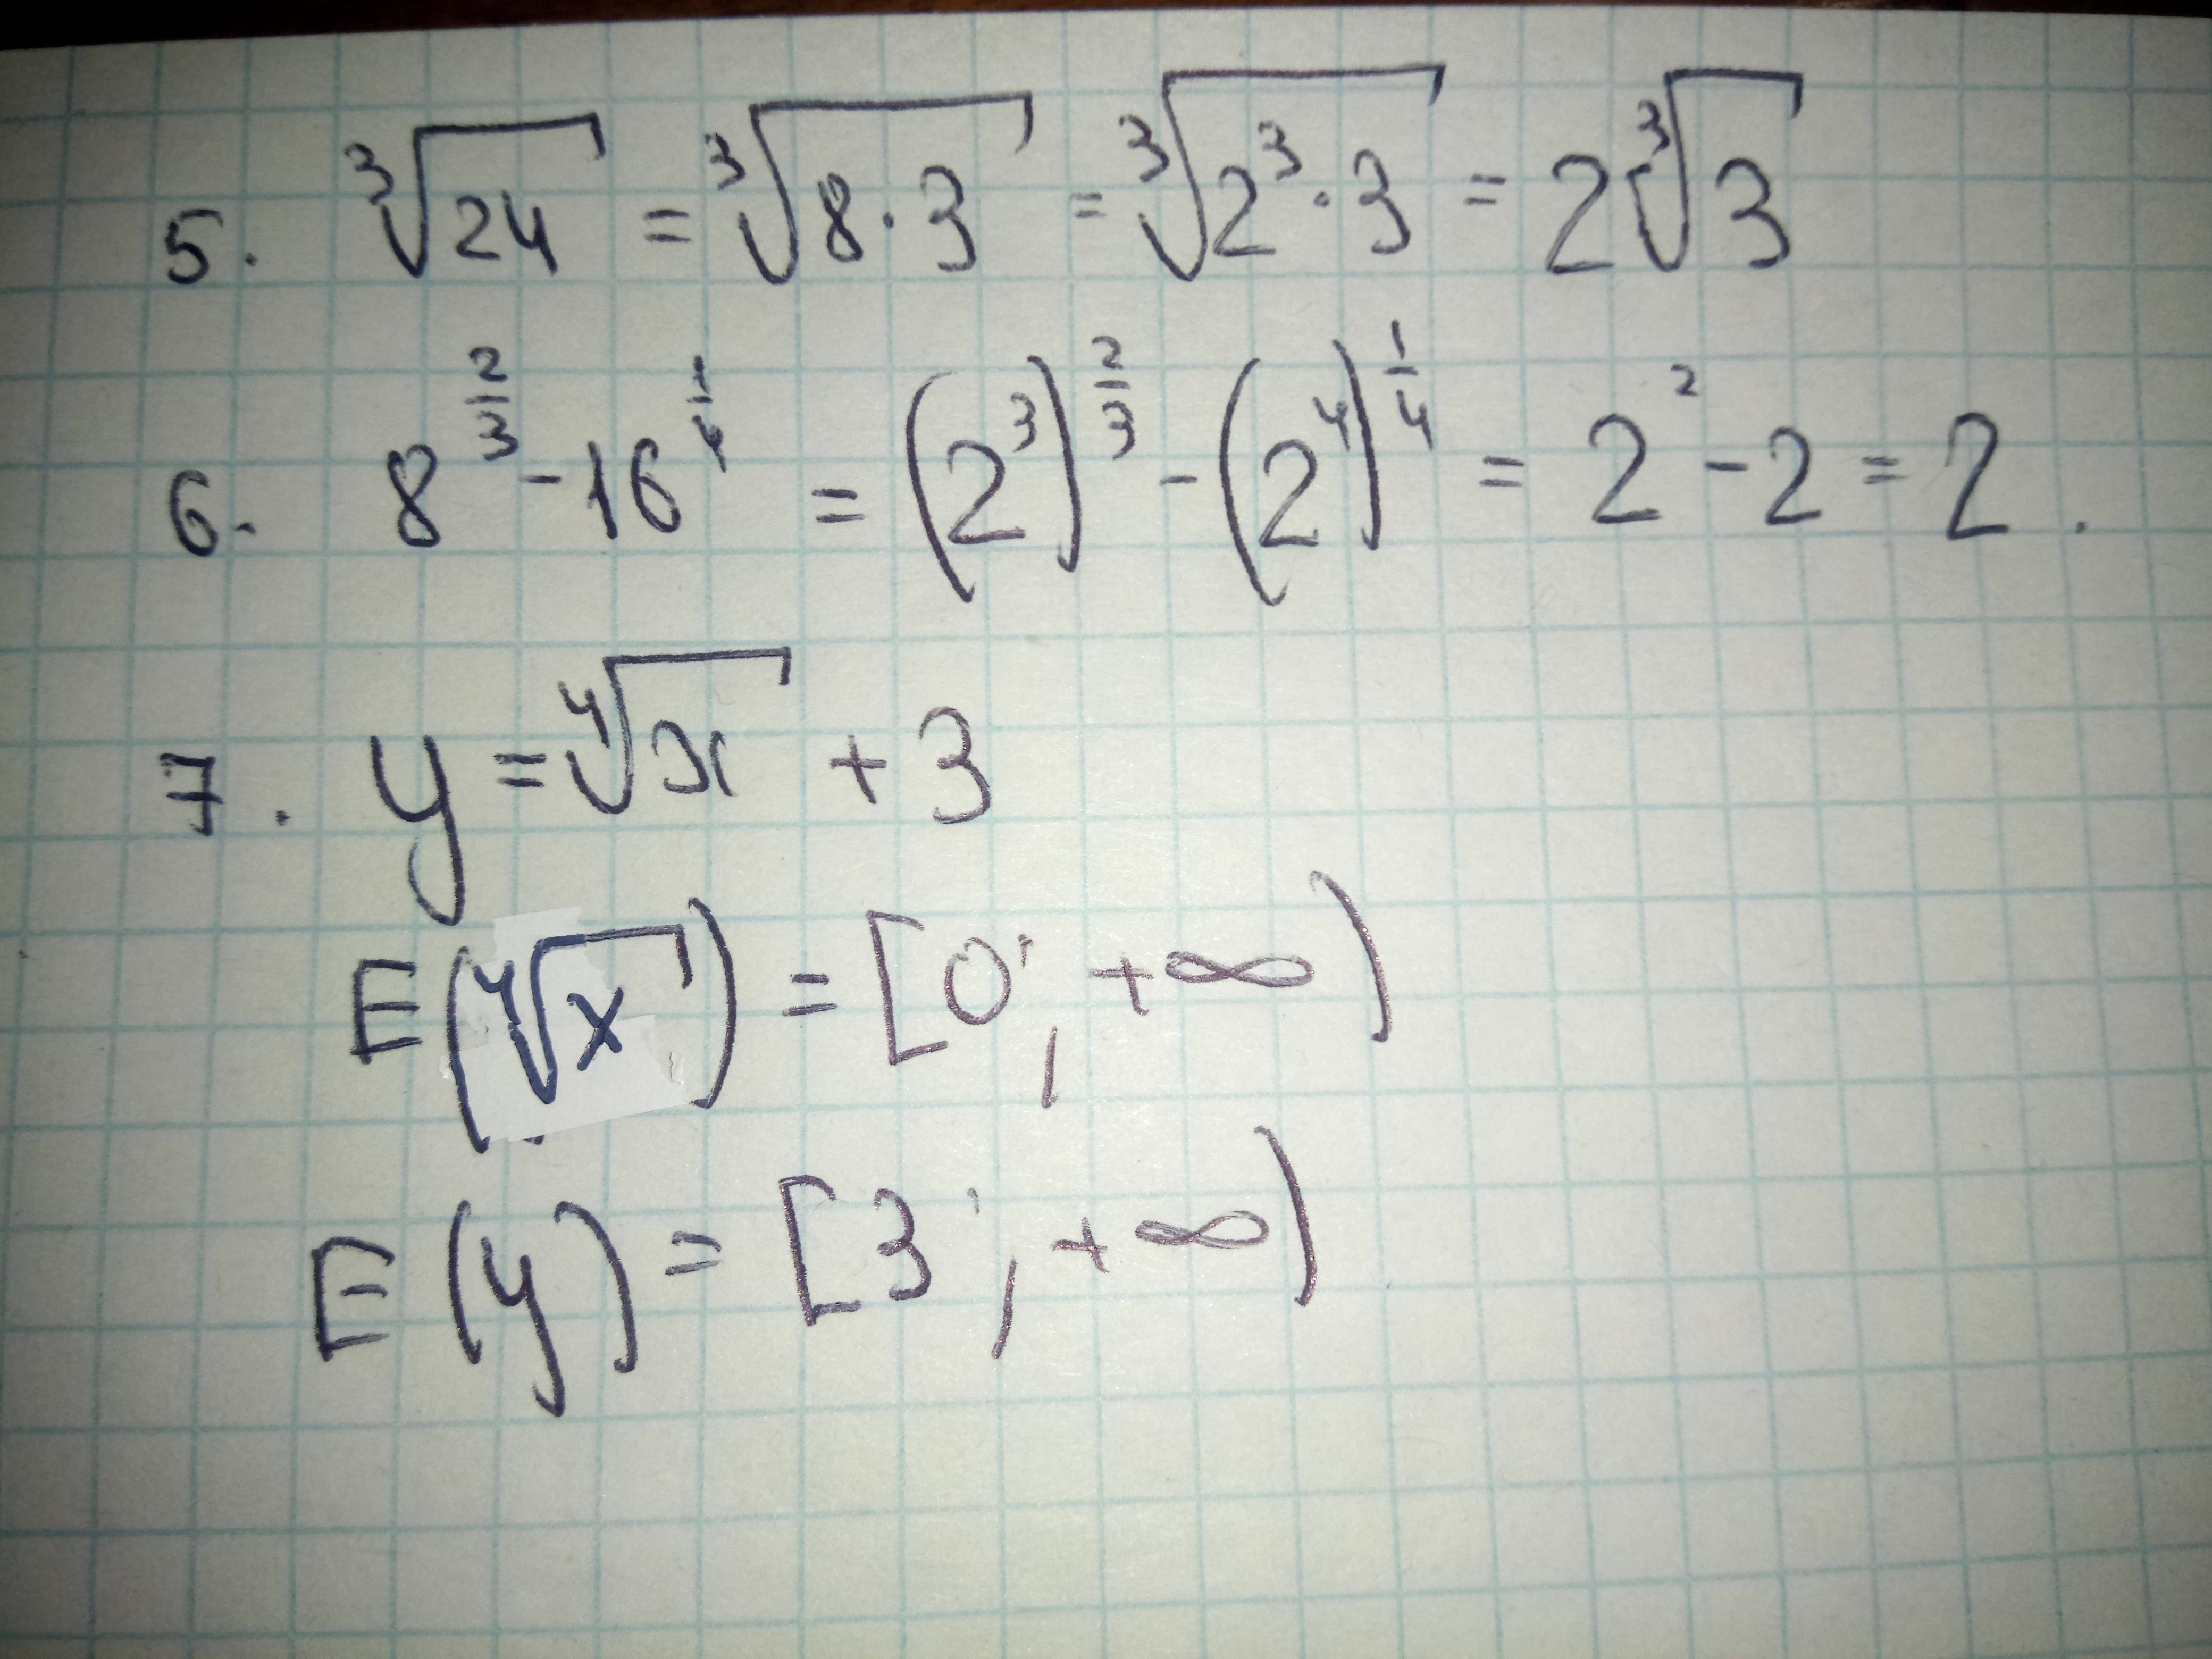 5. ∛24 = ∛(8·3) = ∛(2³·3) = 2∛3
6. 8^(2/3) - 16^(1/4) = (2³)^(2/3) - (2⁴)^(1/4) = 2² - 2 = 2.
7. y = ∜x + 3
E(∜x) = [0; +∞)
E(y) = [3; +∞)